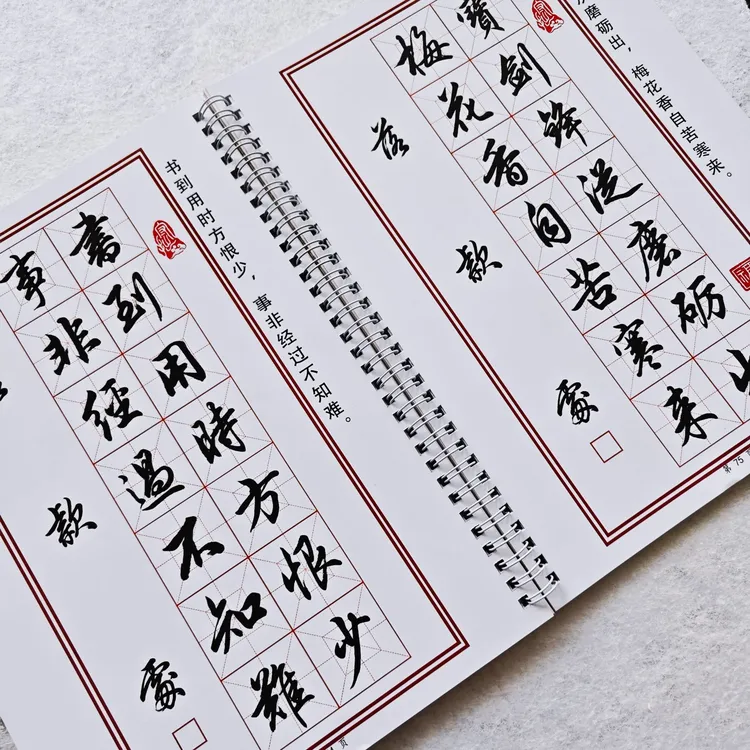 书到用时方恨少，事非经过不知难。
書到用時方恨少
事非經過不知難
款
處
页
磨砺出，梅花香自苦寒来。
寶劍鋒從磨砺
梅花香自苦寒来
落
款
處
第 75